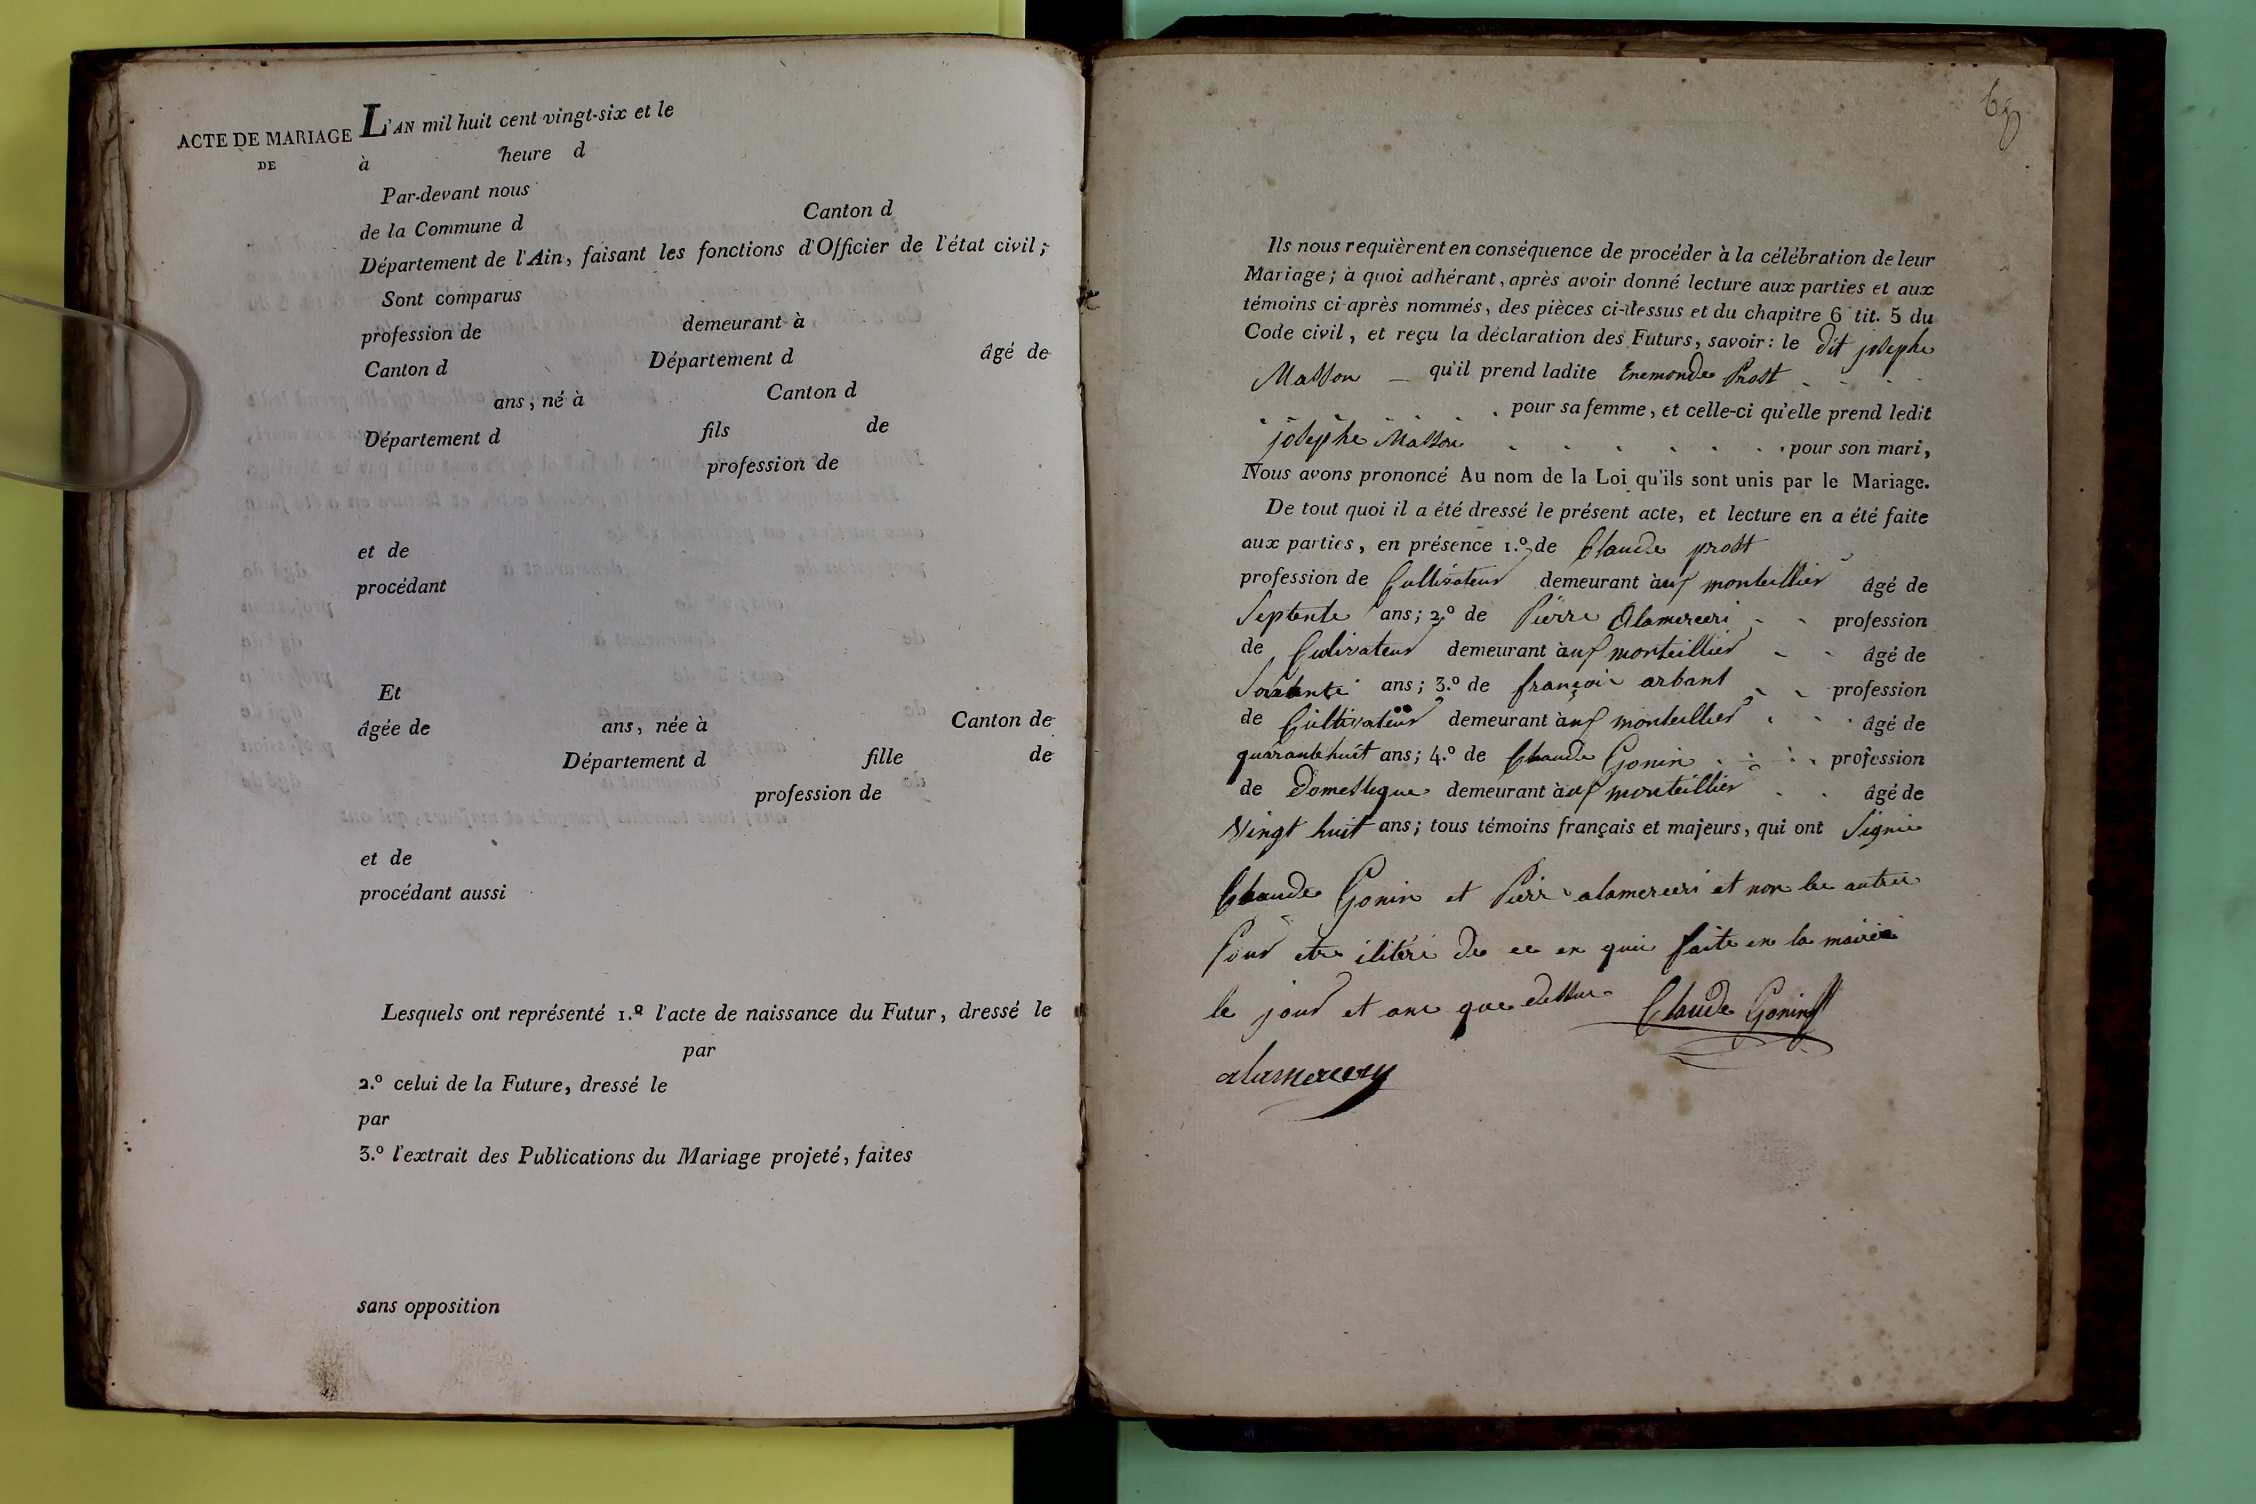 ACTE DE MARIAGE
DE
L'AN mil huit cent vingt-six et le
à heure d
Par-devant nous
de la Commune d Canton d
Département de l'Ain, faisant les fonctions d'Officier de l'état civil;
Sont comparus
profession de demeurant à
Canton d Département d âgé de
ans, né à Canton d
Département d fils de
profession de
et de
procédant
Et
âgée de ans, née à Canton de
Département d fille de
profession de
et de
procédant aussi
Lesquels ont représenté 1.º l'acte de naissance du Futur, dressé le
par
2.º celui de la Future, dressé le
par
3.º l'extrait des Publications du Mariage projeté, faites
sans opposition
Ils nous requièrent en conséquence de procéder à la célébration de leur
Mariage; à quoi adhérant, après avoir donné lecture aux parties et aux
témoins ci-après nommés, des pièces ci-dessus et du chapitre 6 tit. 5 du
Code civil, et reçu la déclaration des Futurs, savoir: le dit josephe
Masson qu'il prend ladite Enemonde Prost
pour sa femme, et celle-ci qu'elle prend ledit
josephe Masson pour son mari,
Nous avons prononcé Au nom de la Loi qu'ils sont unis par le Mariage.
De tout quoi il a été dressé le présent acte, et lecture en a été faite
aux parties, en présence 1.º de Claude prost
profession de Cultivateur demeurant à auf monteillier âgé de
Septente ans; 2.º de Pierre Alamerceri profession
de Culivateur demeurant à auf monteillier âgé de
Soixante ans; 3.º de françoi arbant profession
de Cultivateur demeurant à auf monteillier âgé de
quarante huit ans; 4.º de Claude Gonin profession
de Domestique demeurant à auf monteillier âgé de
Vingt huit ans; tous témoins français et majeurs, qui ont Signie
Claude Gonin et Pierr alamerceri et non les autres
Pour etre ilitéré de ce en quie faite en la mairie
le jour et ane que dessus Claude Gonin
alamercery